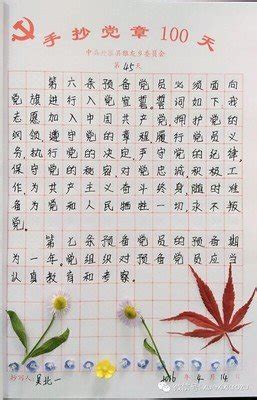 手抄党章100天
第45天
第六条预备党员必须面向
党旗进行入党宣誓。誓词如下:我
志愿加入中国共产党,拥护党的
纲领,遵守党的章程,履行党员义
务,执行党的决定,严守党的纪律,
保守党的秘密,对党忠诚,积极工
作,为共产主义奋斗终身,随时准
备为党和人民牺牲一切,永不叛
党。
第七条预备党员的预备期
为一年。党组织对预备党员应当
认真教育和考察。
抄写人 吴北一
2016年4月14日